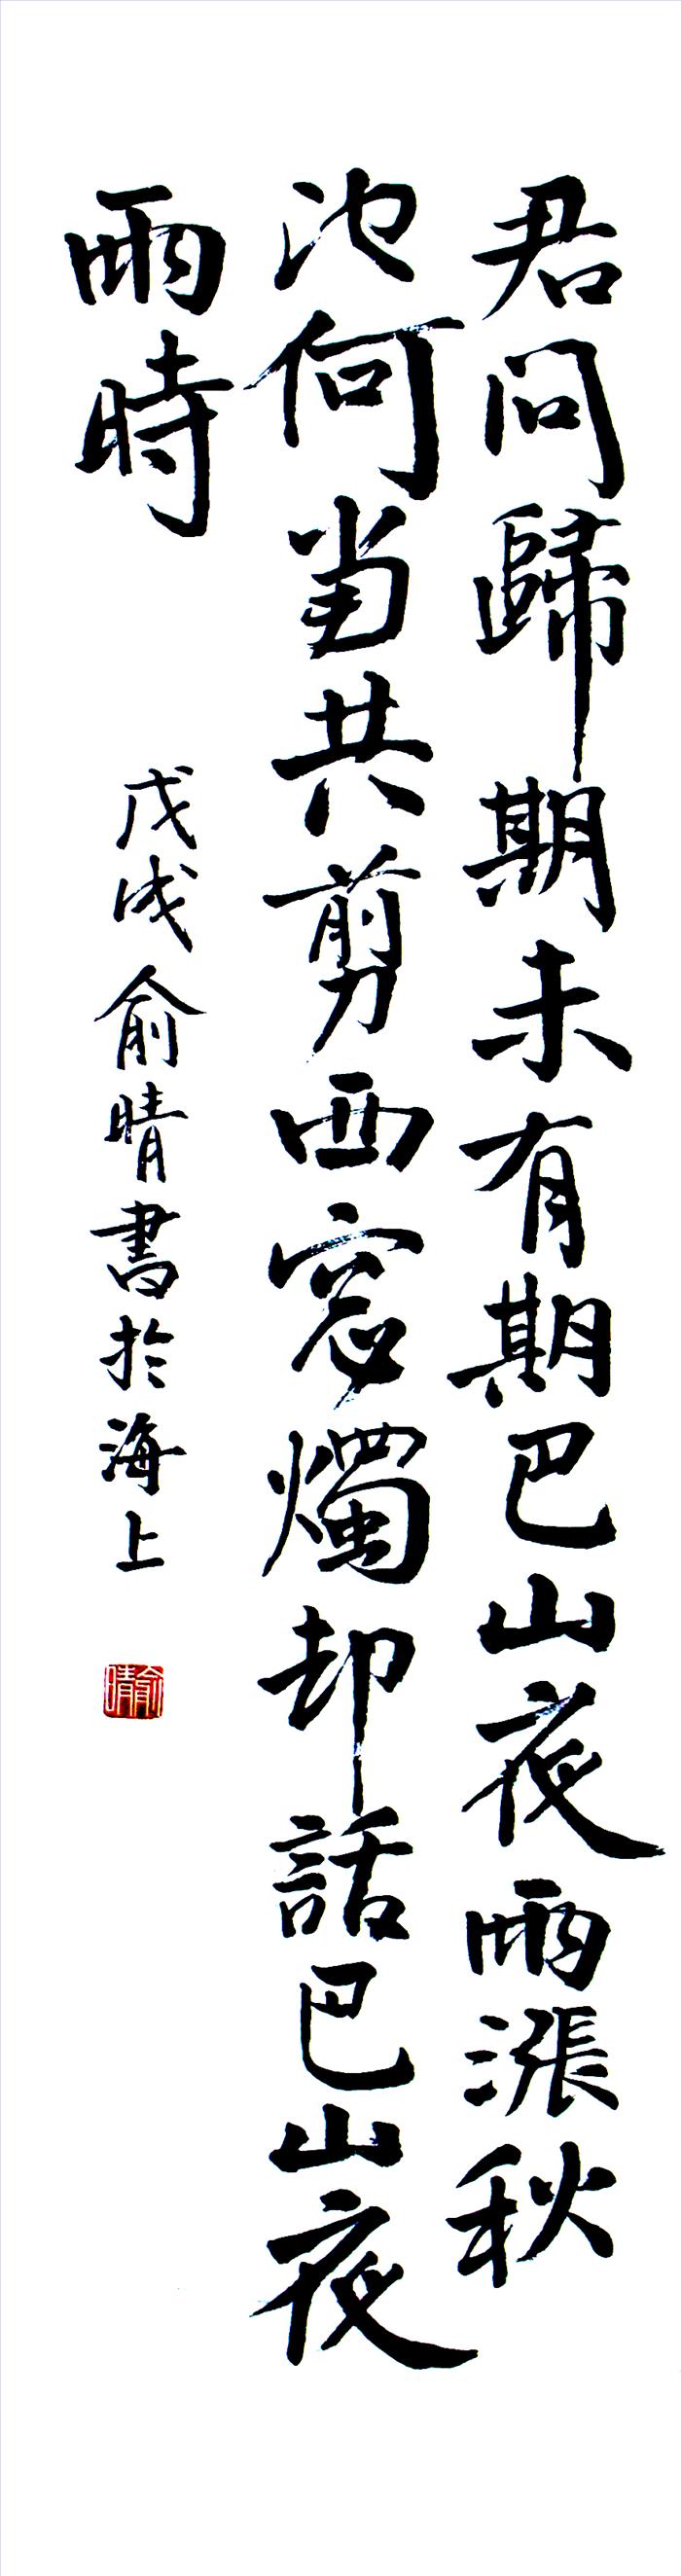 君問歸期未有期巴山夜雨漲秋
池何當共剪西窓燭却話巴山夜
雨時
戊戌俞晴書於海上
俞晴